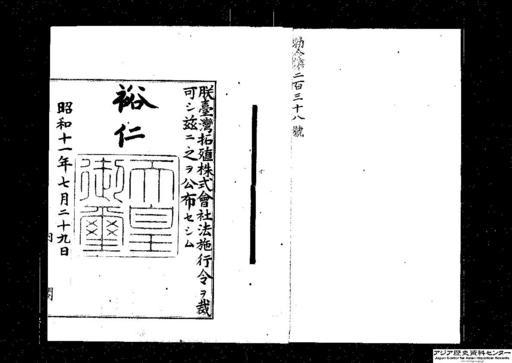 勅令第二百三十八號
朕臺灣拓殖株式會社法施行令ヲ裁
可シ茲ニ之ヲ公布セシム
裕仁
天皇御璽
昭和十一年七月二十九日
内閣
アジア歴史資料センター
Japan Center for Asian Historical Records